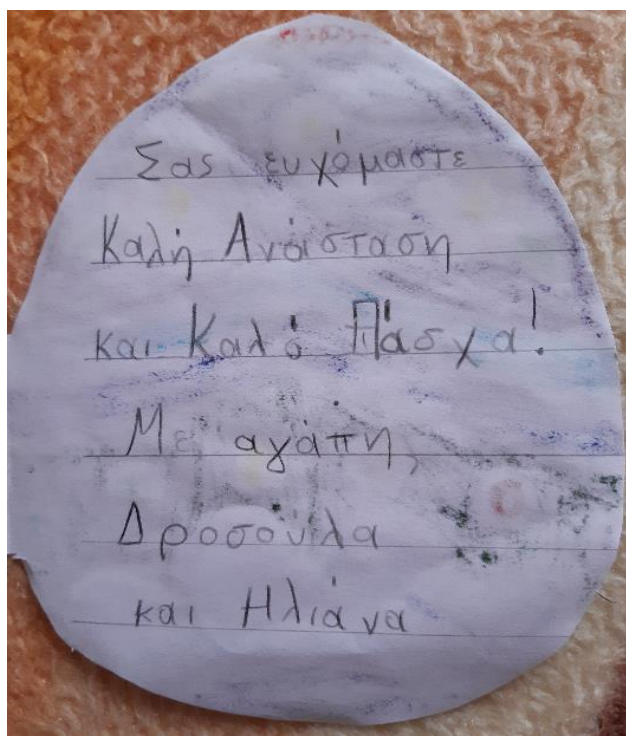 Σας ευχόμαστε
Καλή Ανάσταση
και Καλό Πάσχα!
Με αγάπη,
Δροσούλα
και Ηλιάνα